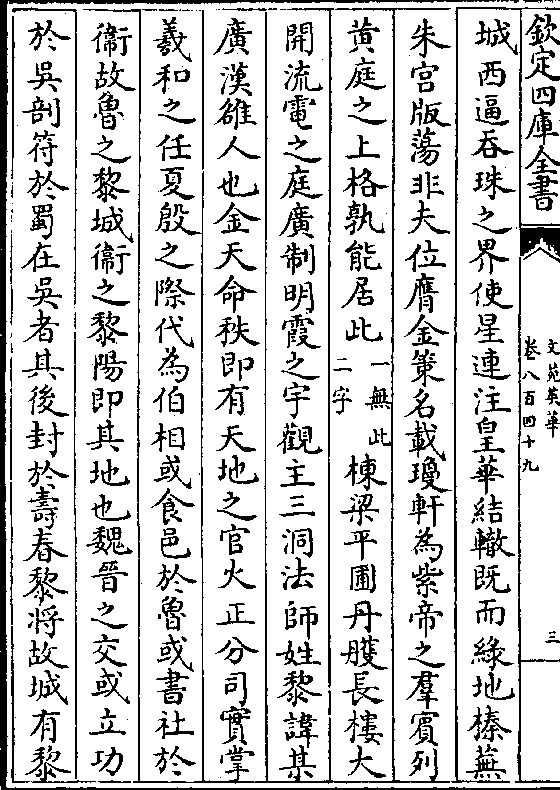 欽定四庫全書
文苑英華
卷八百四十九
三
城西逼吞珠之界使星連注皇華結轍既而緑地榛蕪
朱宫版蕩非夫位膺金策名載瓊軒為紫帝之羣賓列
黄庭之上格孰能居此一無此二字棟梁平圃丹雘長樓大
開流電之庭廣制明霞之宇觀主三洞法師姓黎諱某
廣漢雒人也金天命秩即有天地之官火正分司實掌
羲和之任夏殷之際代為伯相或食邑於魯或書社於
衞故魯之黎城衞之黎陽即其地也魏晉之交或立功
於吳剖符於蜀在吳者其後封於壽春黎將故城有黎